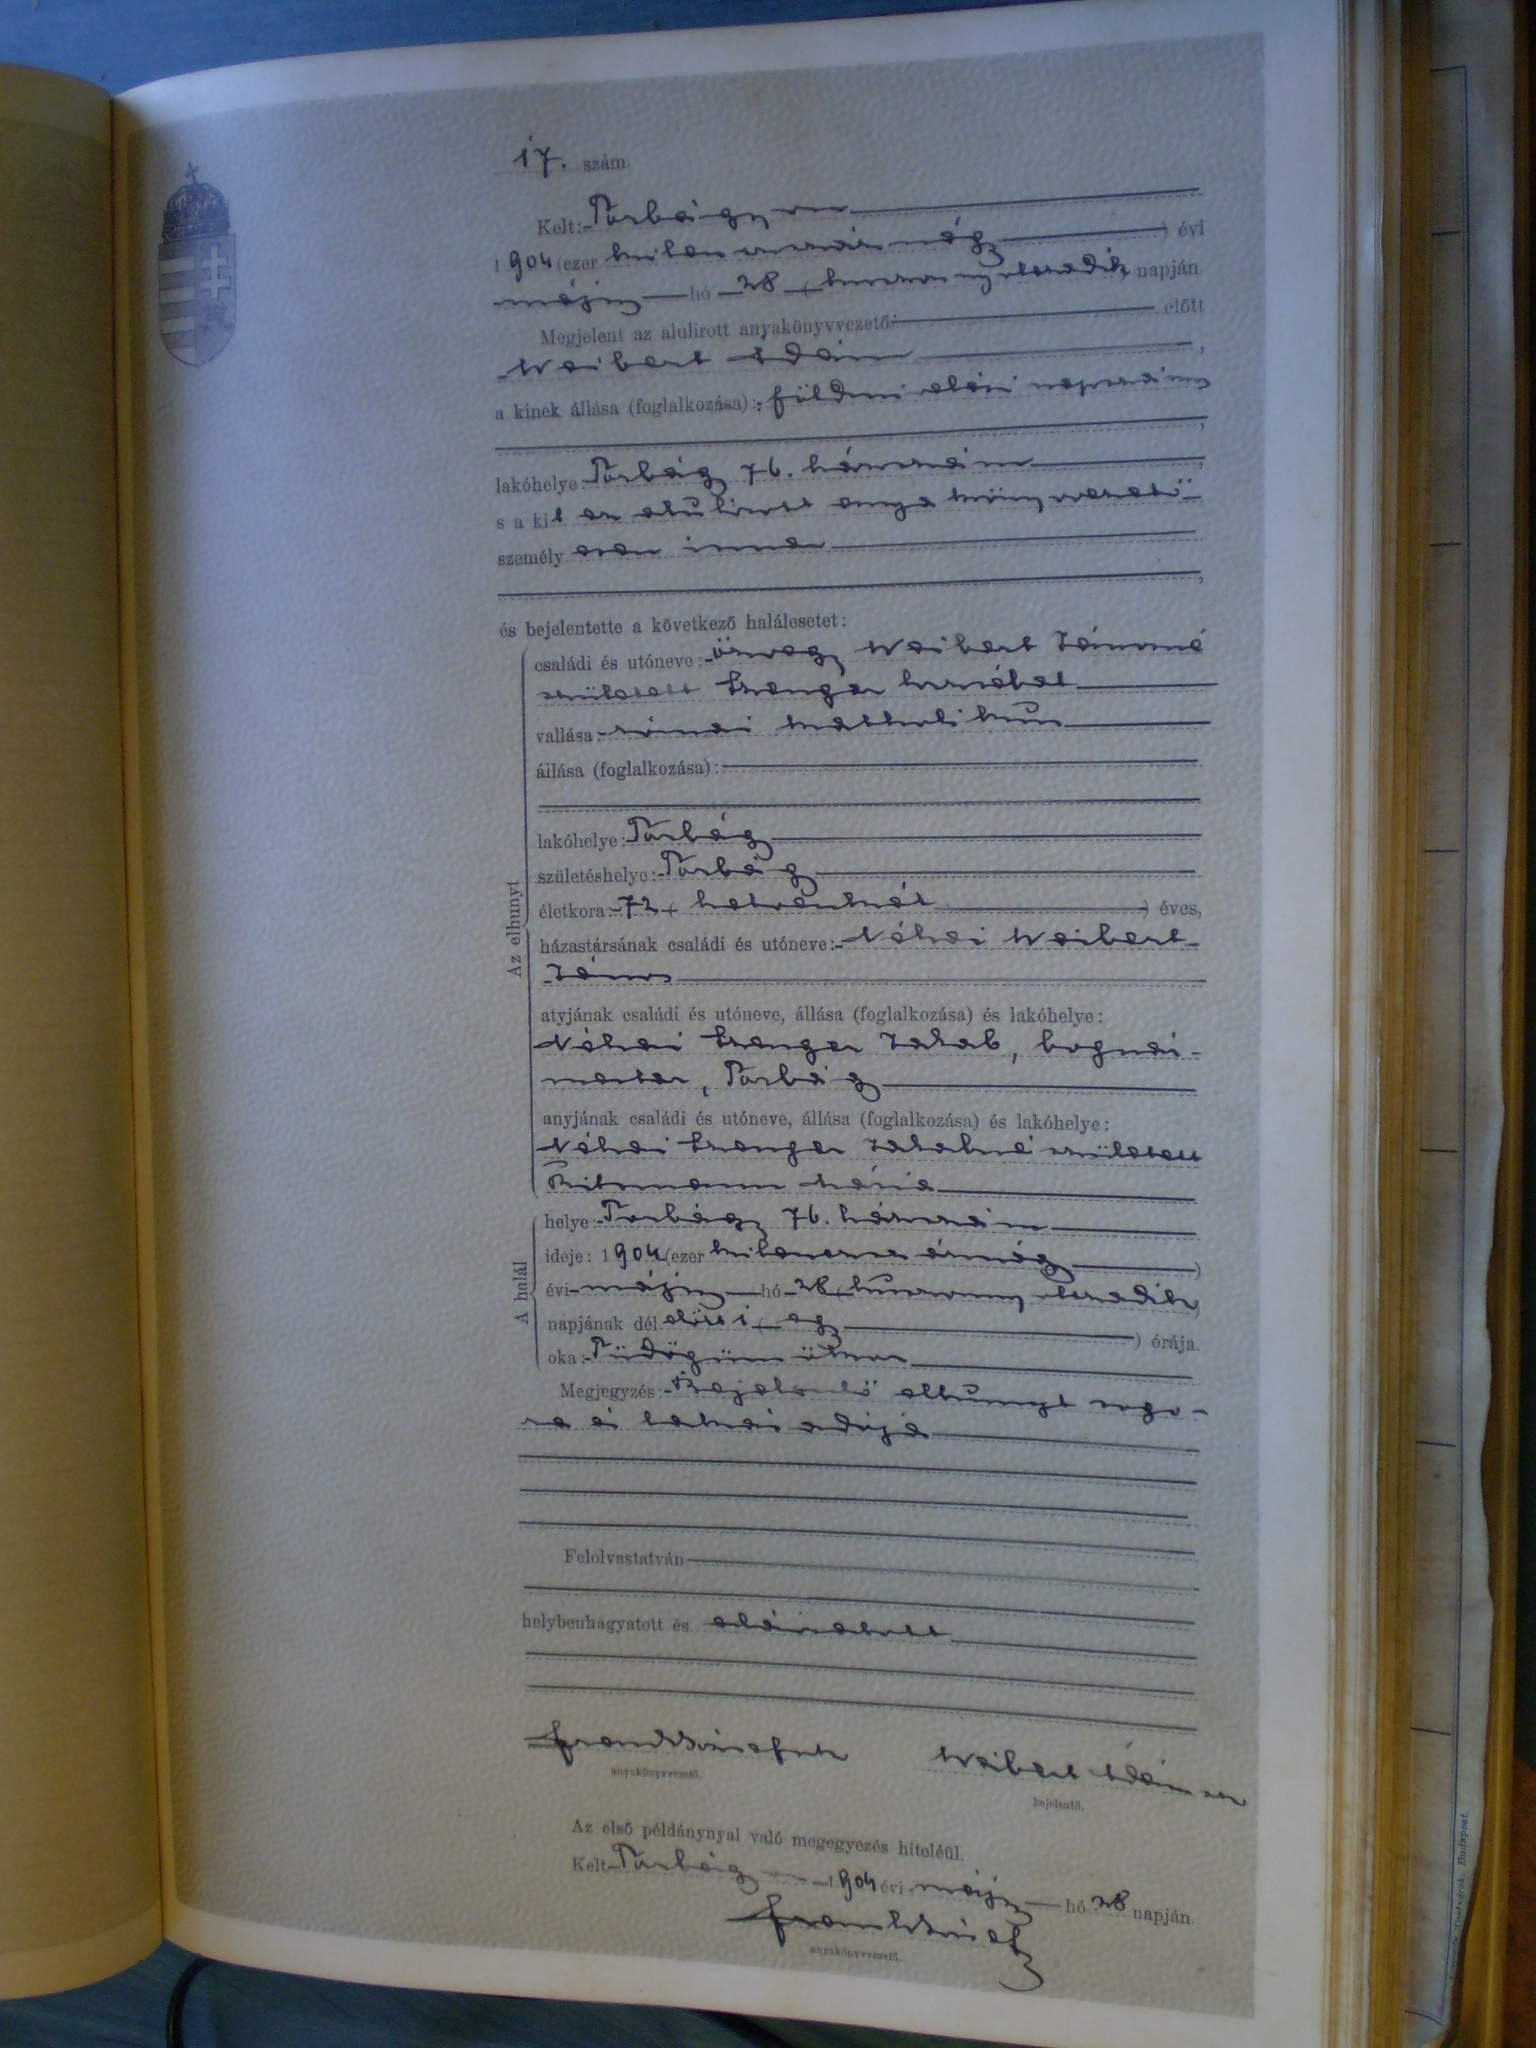 17. szám.
Kelt: Torbágyon
1904 (ezer kilenczszáz négy) évi
május hó 28 (huszonnyolczadik) napján.
Megjelent az alulirott anyakönyvvezető előtt
Weibert Ádám,
a kinek állása (foglalkozása): földmivelési napszámos
,
lakóhelye Torbágy 76. házszám,
s a kit az alulirott anyakönyvvezető
személyesen ismer
,
és bejelentette a következő halálesetet:
Az elhunyt
családi és utóneve: özvegy Weibert Jánosné
született Stenger Erzsébet
vallása: római katholikus
állása (foglalkozása):
lakóhelye: Torbágy
születéshelye: Torbágy
életkora: 72 (hetvenkét) éves,
házastársának családi és utóneve: Néhai Weibert
János
atyjának családi és utóneve, állása (foglalkozása) és lakóhelye:
Néhai Stenger Jakab, bognár-
mester, Torbágy
anyjának családi és utóneve, állása (foglalkozása) és lakóhelye:
Néhai Stenger Jakabné született
Mária
A halál
helye: Torbágy 76. házszám
ideje: 1904 (ezer kilenczszáznégy)
évi május hó 28 (huszonnyolczadik)
napjának dél előtti (egy) órája.
oka: Tüdőgümőkór
Megjegyzés: Bejelentő elhunyt sógo-
ra és lakásadója
Felolvastatván
helybenhagyatott és aláiratott
Weibert Ádám
anyakönyvvezető.
bejelentő.
Az első példánynyal való megegyezés hiteléül.
Kelt Torbágyon 1904 évi május hó 28 napján.
anyakönyvvezető.
Budapest.